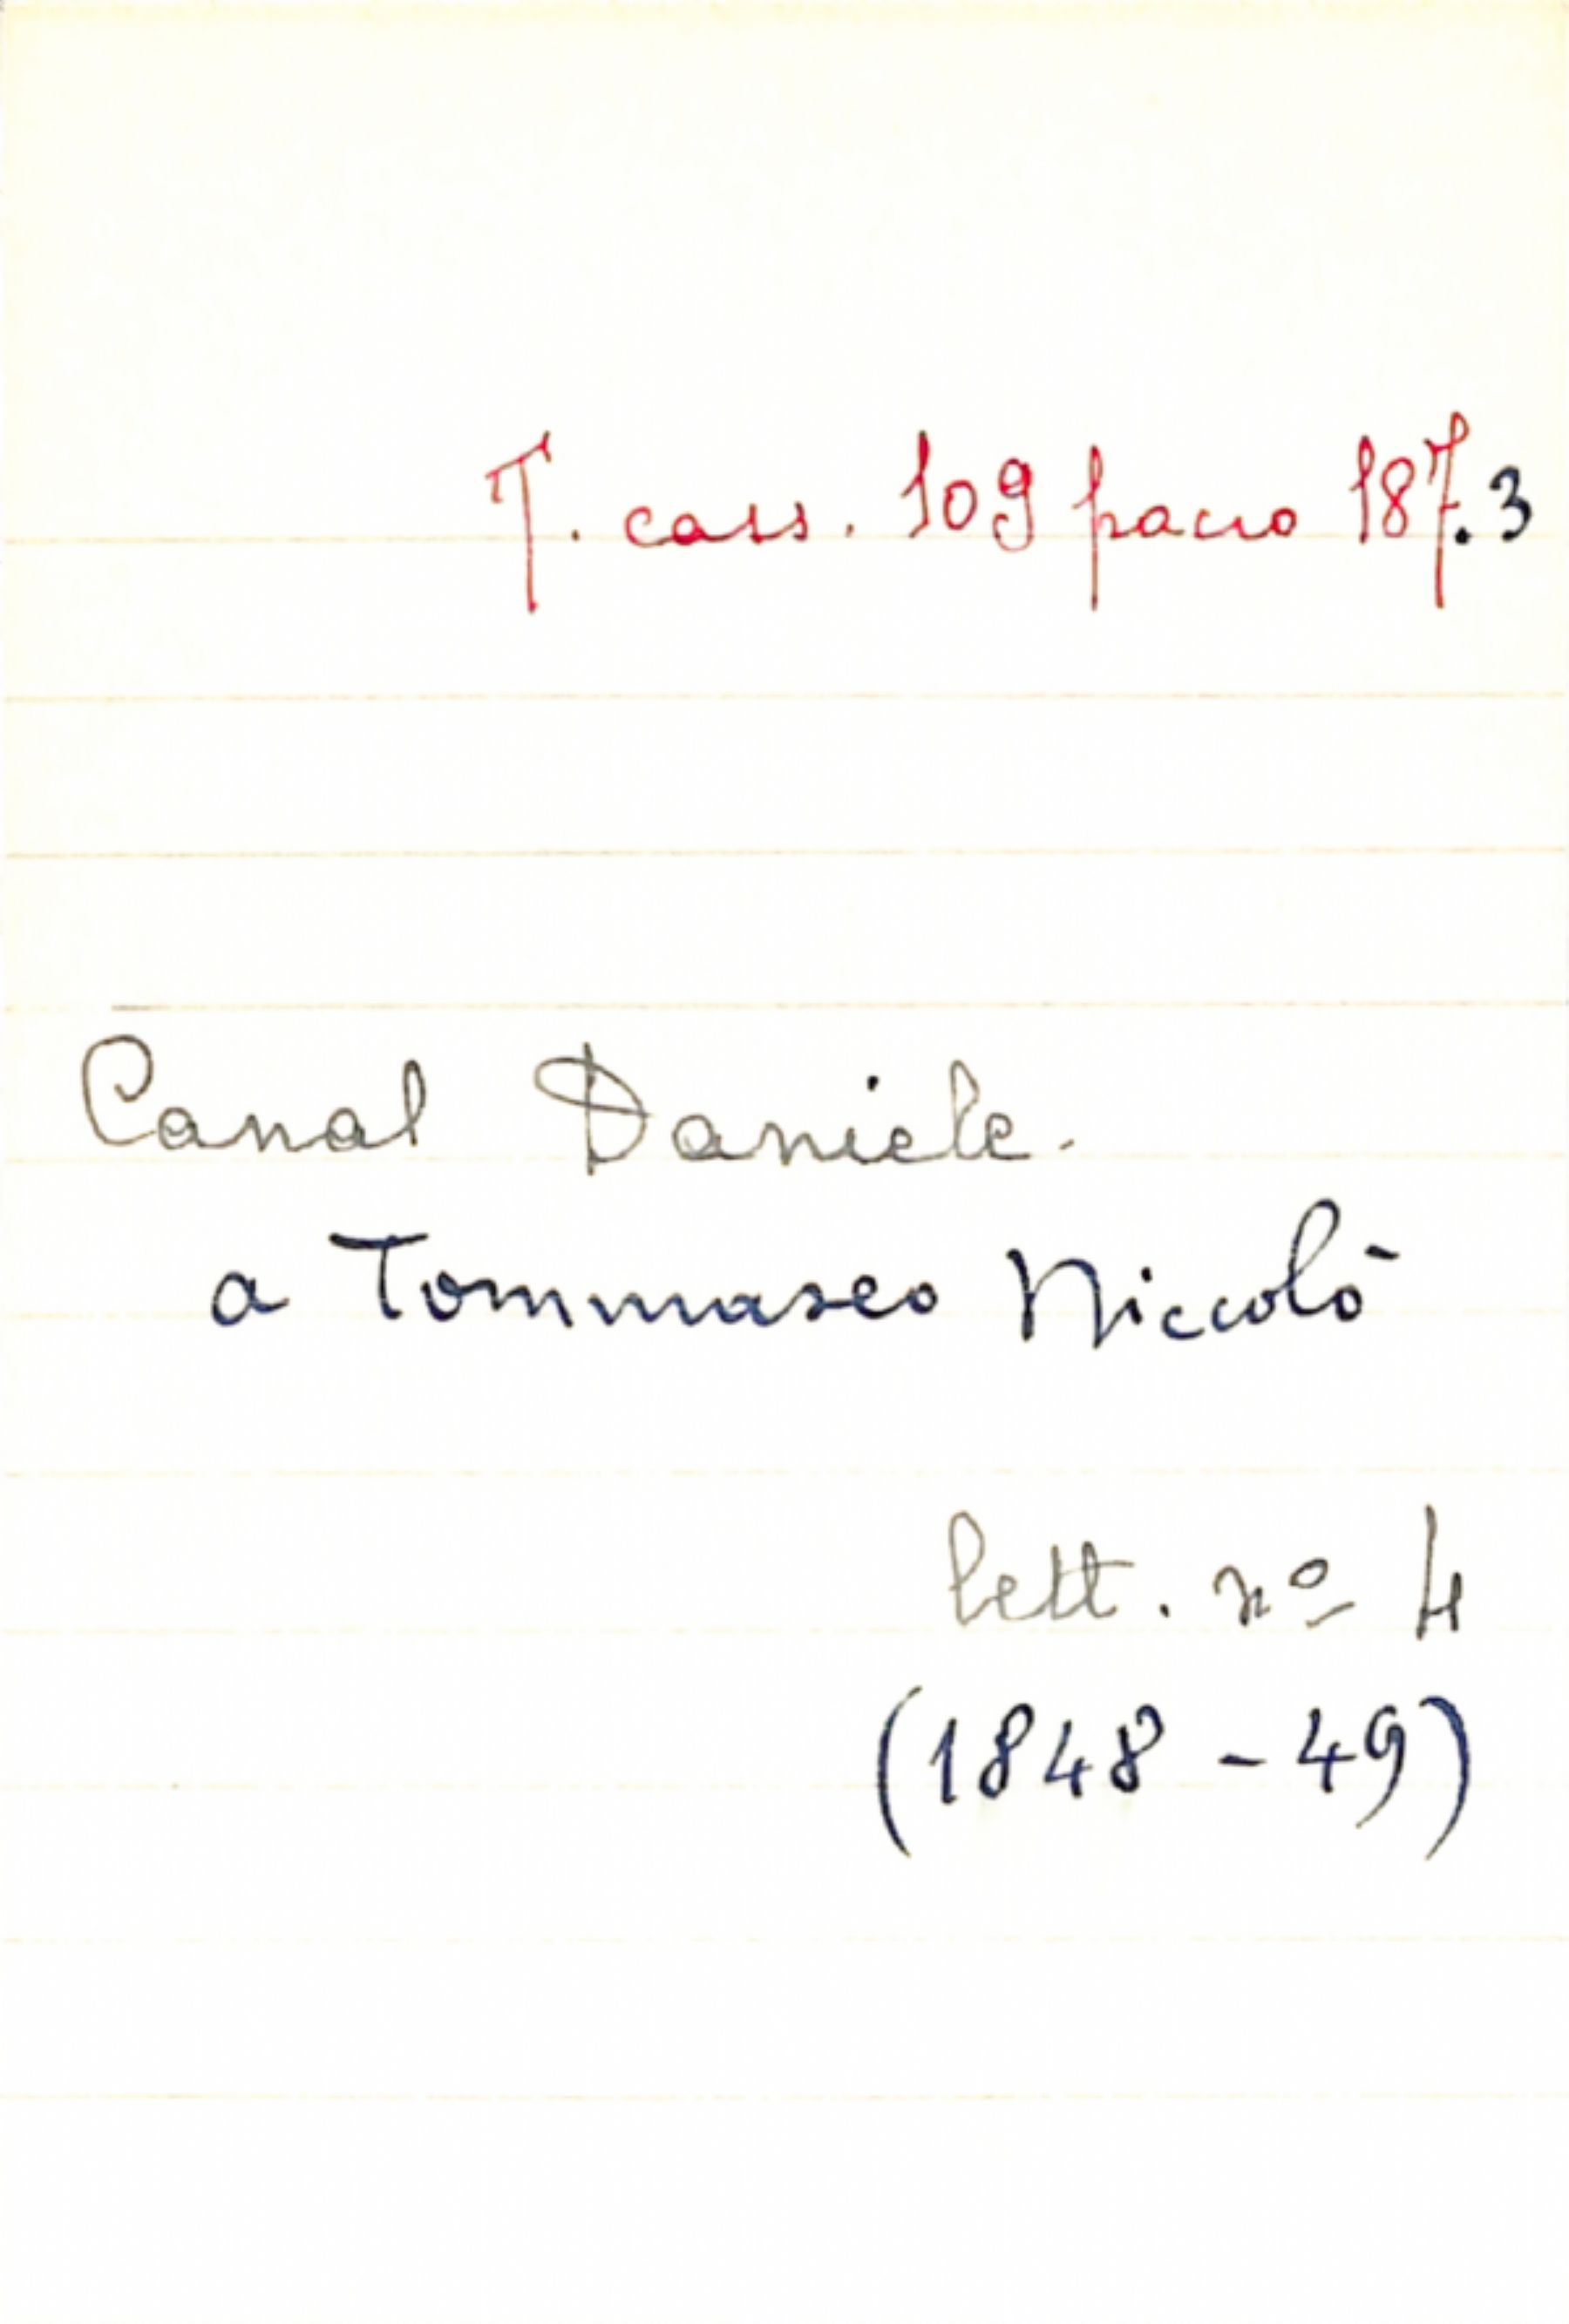 T. cass. 109 pacco 187.3
Canal Daniele.
a Tommaseo Niccolò
lett. nº 4
(1848 - 49)